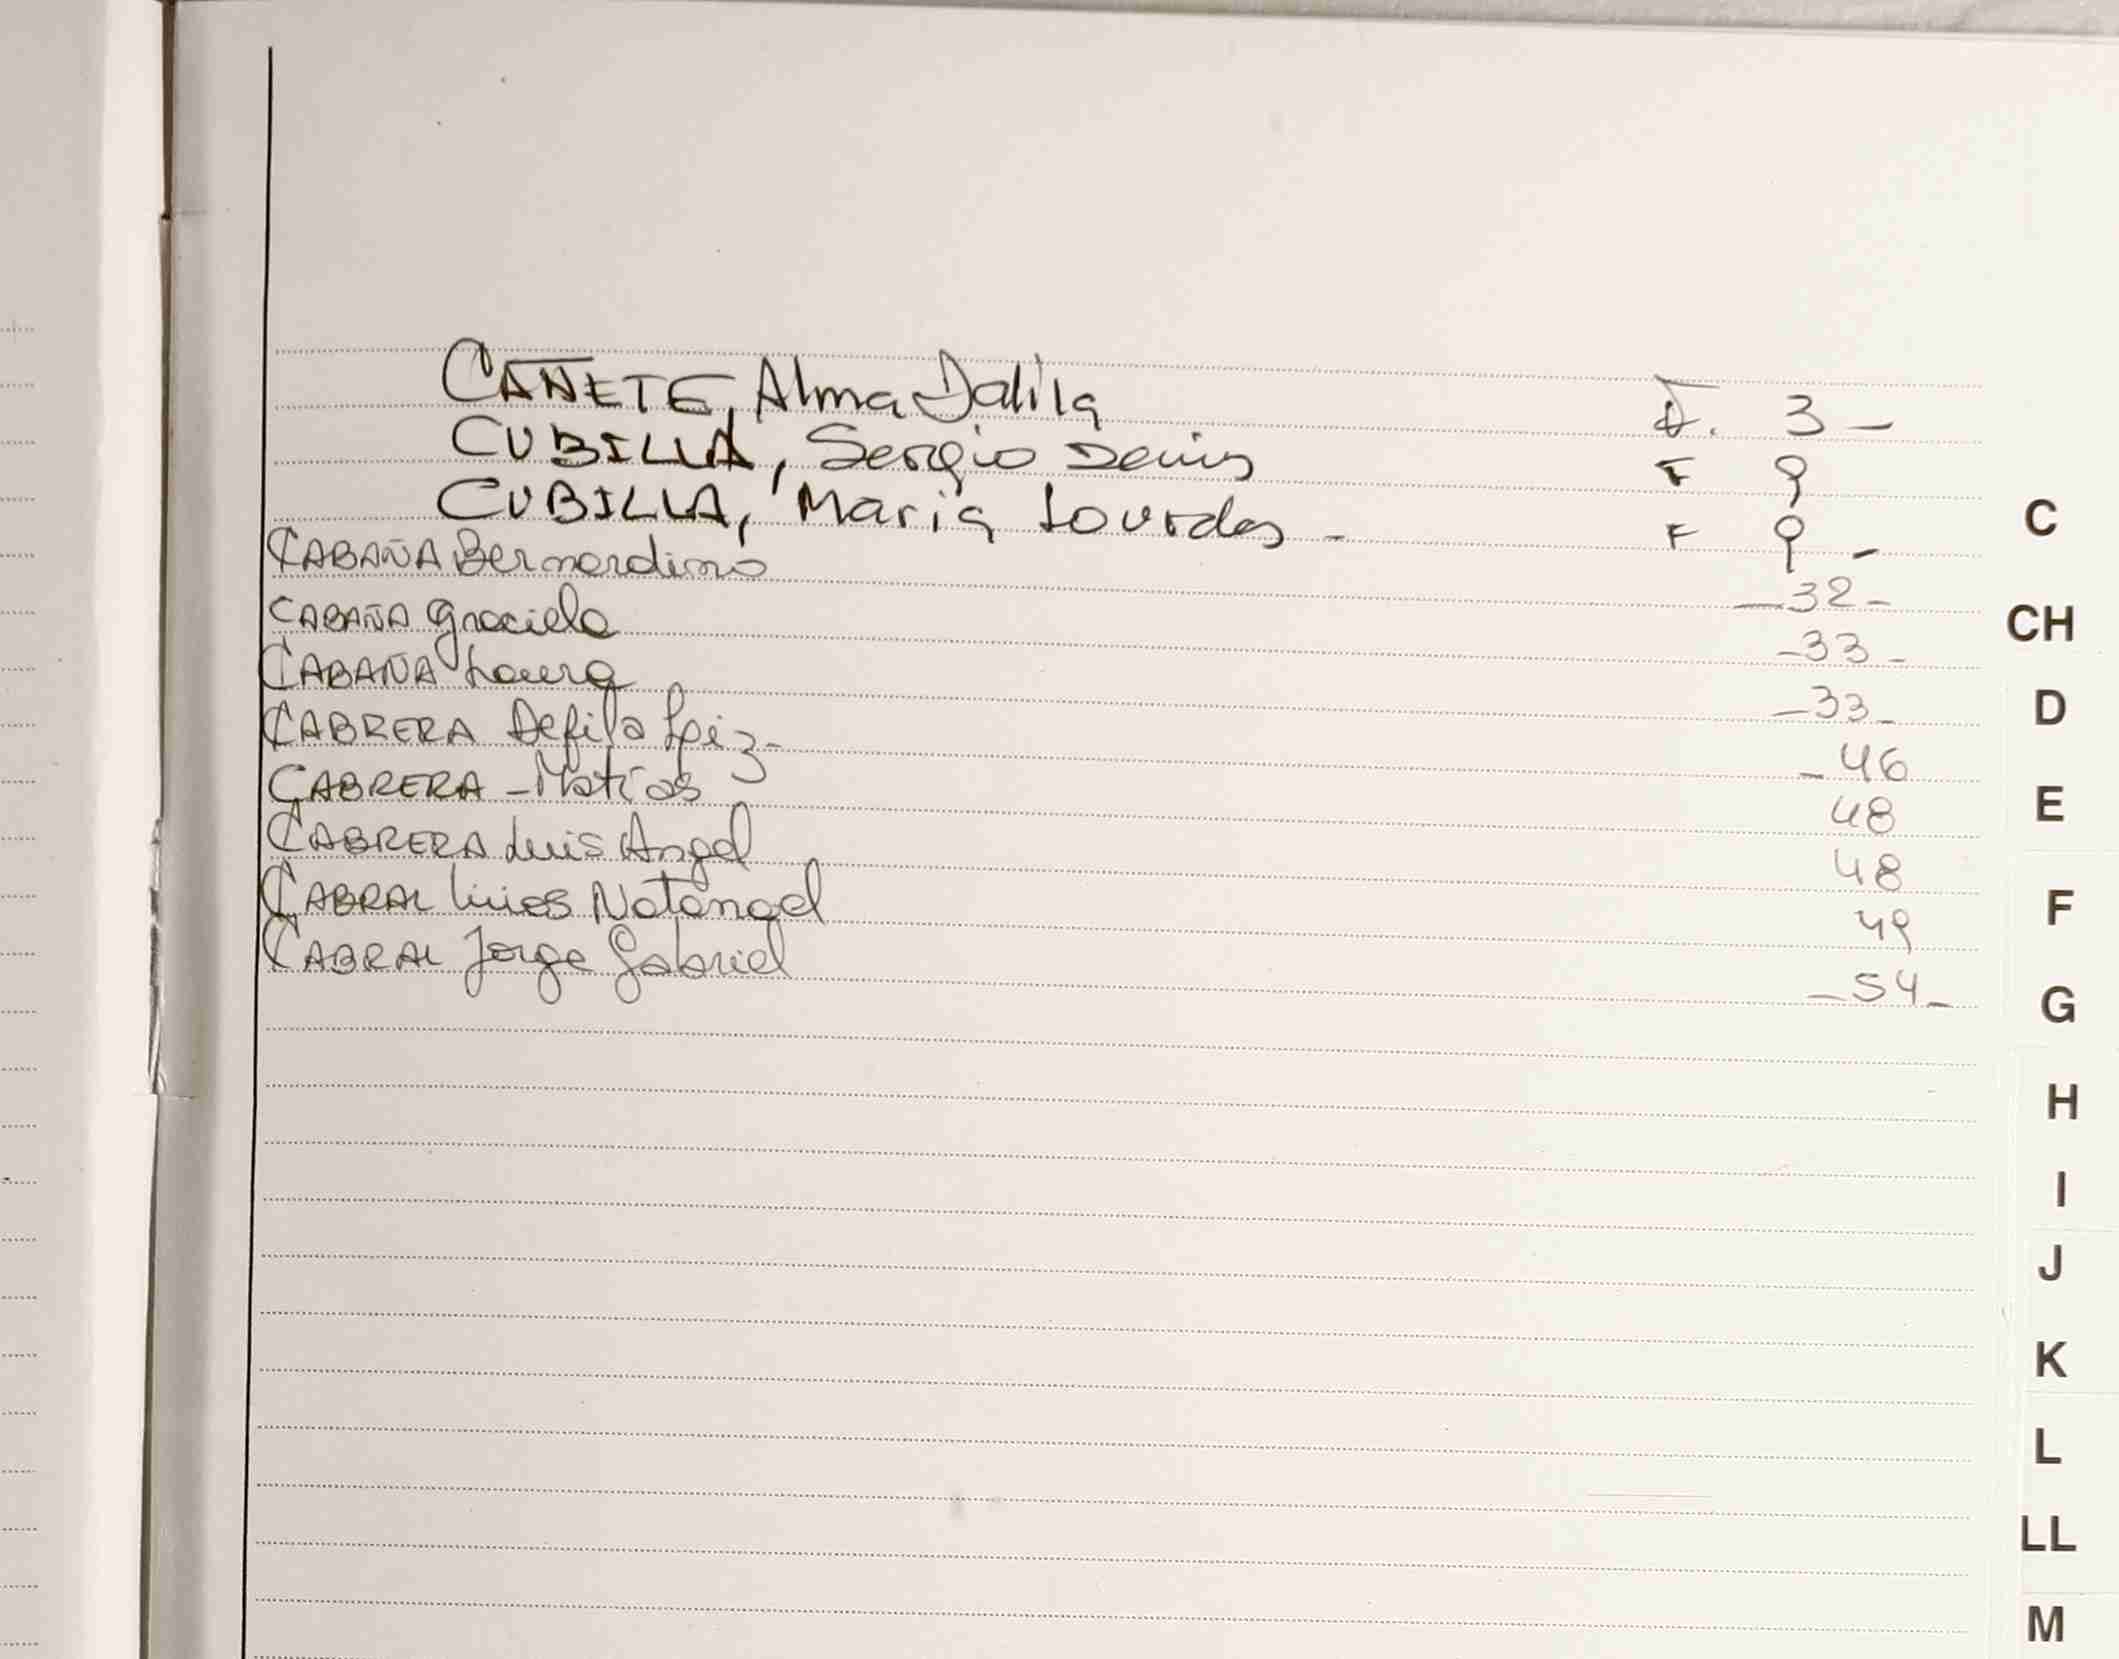 CAÑETE, Alma Dalila F. 3 -
CUBILLA, Sergio Denis F 9
CUBILLA, Maria Lourdes - F 9 -
CABAÑA Bernardino - 32 -
CABAÑA Graciela - 33 -
CABAÑA Laura - 33 -
CABRERA - 46
CABRERA - Matías 48
CABRERA Luis Angel 48
CABRAL Natanael 49
CABRAL Jorge Gabriel - 54 -
C
CH
D
E
F
G
H
I
J
K
L
LL
M